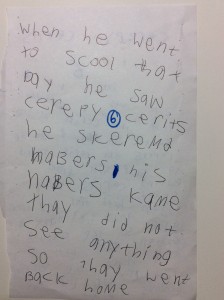 when he went
to scool that
Day he saw
cerepy 6 cerits
he skeremd
maBers his
naBers kame
thay did not
see anything
so thay went
Back home